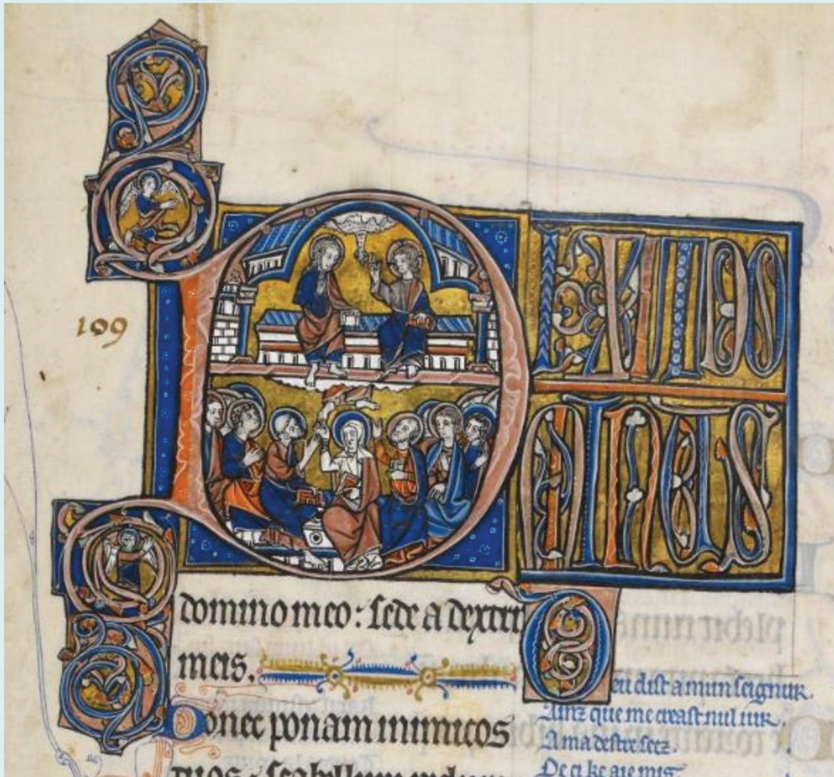 109
DIXIT DO
MINUS
domino meo : sede a dextr
meis.
Donec ponam inimicos
Deu dist a mun seignur.
Ainz que me creast nul iur.
A ma destre seez.
De ci ke aie mis